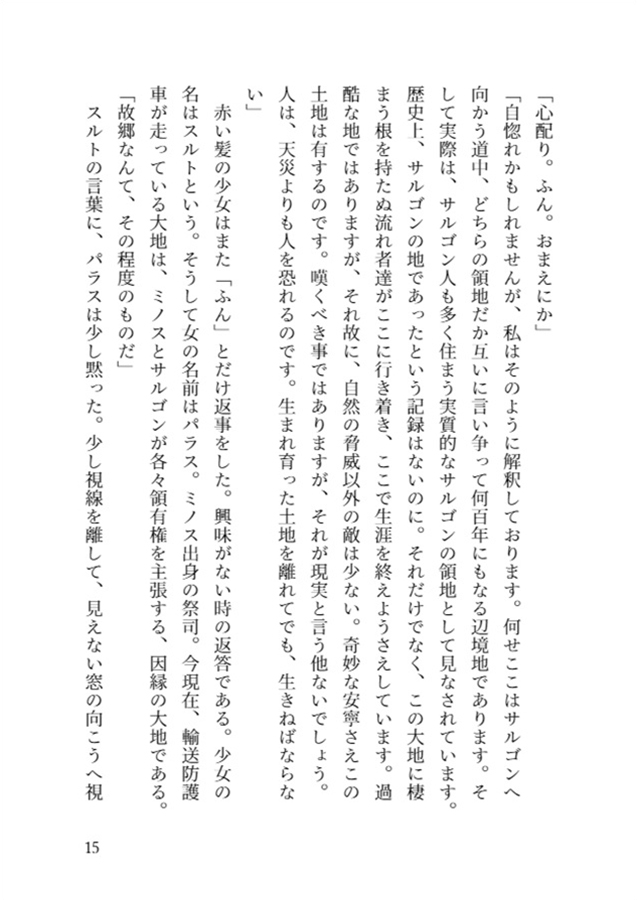 「心配り。ふん。おまえにか」
「自惚れかもしれませんが、私はそのように解釈しております。何せここはサルゴンへ
向かう道中、どちらの領地だか互いに言い争って何百年にもなる辺境地であります。そ
して実際は、サルゴン人も多く住まう実質的なサルゴンの領地として見なされています。
歴史上、サルゴンの地であったという記録はないのに。それだけでなく、この大地に棲
まう根を持たぬ流れ者達がここに行き着き、ここで生涯を終えようさえしています。過
酷な地ではありますが、それ故に、自然の脅威以外の敵は少ない。奇妙な安寧さえこの
土地は有するのです。嘆くべき事ではありますが、それが現実と言う他ないでしょう。
人は、天災よりも人を恐れるのです。生まれ育った土地を離れてでも、生きねばならな
い」
赤い髪の少女はまた「ふん」とだけ返事をした。興味がない時の返答である。少女の
名はスルトという。そうして女の名前はパラス。ミノス出身の祭司。今現在、輸送防護
車が走っている大地は、ミノスとサルゴンが各々領有権を主張する、因縁の大地である。
「故郷なんて、その程度のものだ」
スルトの言葉に、パラスは少し黙った。少し視線を離して、見えない窓の向こうへ視
15